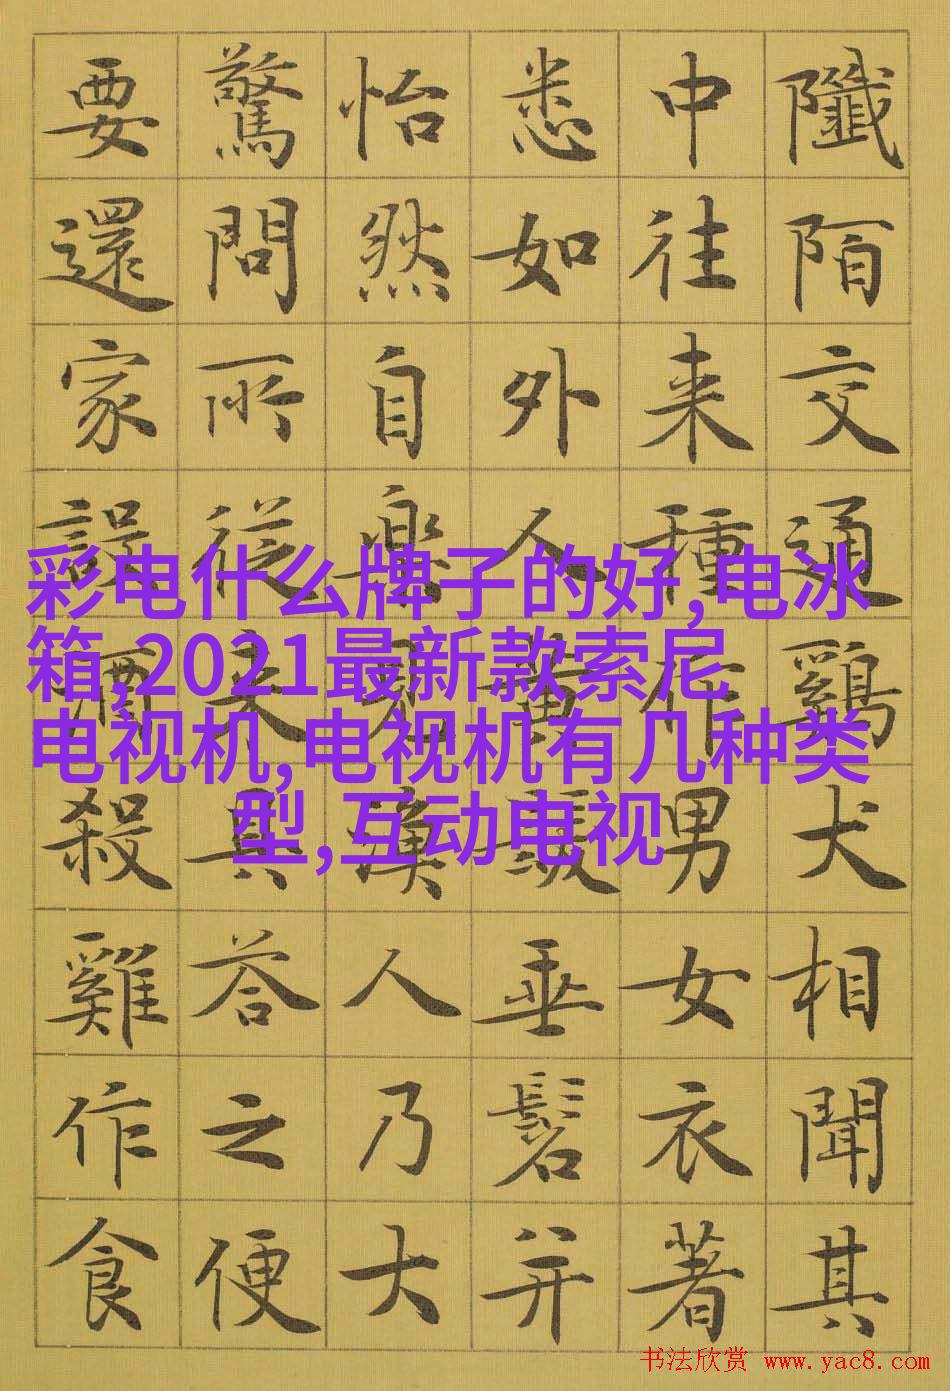 陌交通鷄犬相聞其
中往来種作男女衣著
悉如外人黄髮垂髫并
怡然自樂見漁人乃大
驚問所從来具答之便
要還家設酒殺雞作食
彩电什么牌子的好,电冰
箱,2021最新款索尼
电视机,电视机有几种类
型,互动电视
书法欣赏 www.yac8.com